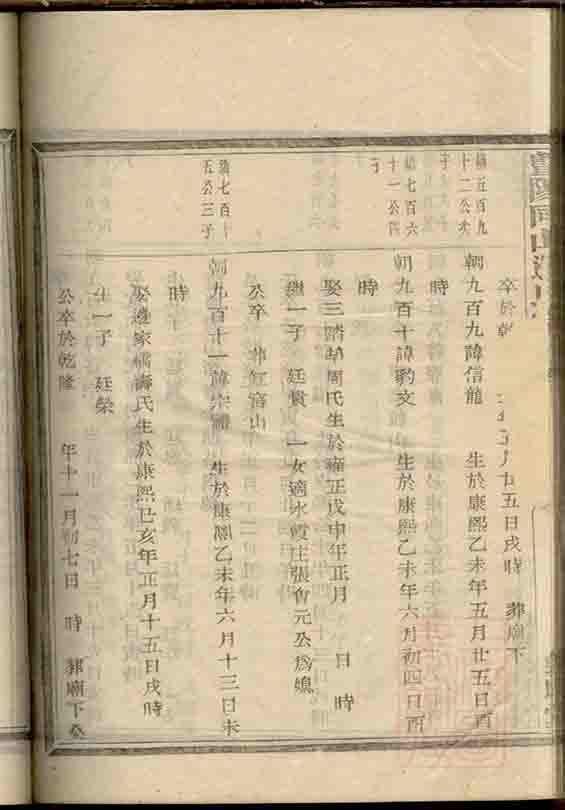 卒於乾 五日戌時 葬廟下
五百九
十二公
朝九百九諱信龍 生於康熙乙未年五月廿五日酉
時
七百六
十一公四
子
朝九百十諱豹文 生於康熙乙未年六月初四日酉
時
娶三踏 周氏生於雍正戊申年正月 日 時
繼一子 廷貴 一女適水 庄張 元公為媳
公卒 葬 窩山
七百十
五公三子
朝九百十一諱宗 生於康熙乙未年六月十三日未
時
娶邊家橋壽氏生於康熙己亥年正月十五日戌時
生一子 廷榮
公卒於乾隆 年十一月初七日 時 葬廟下